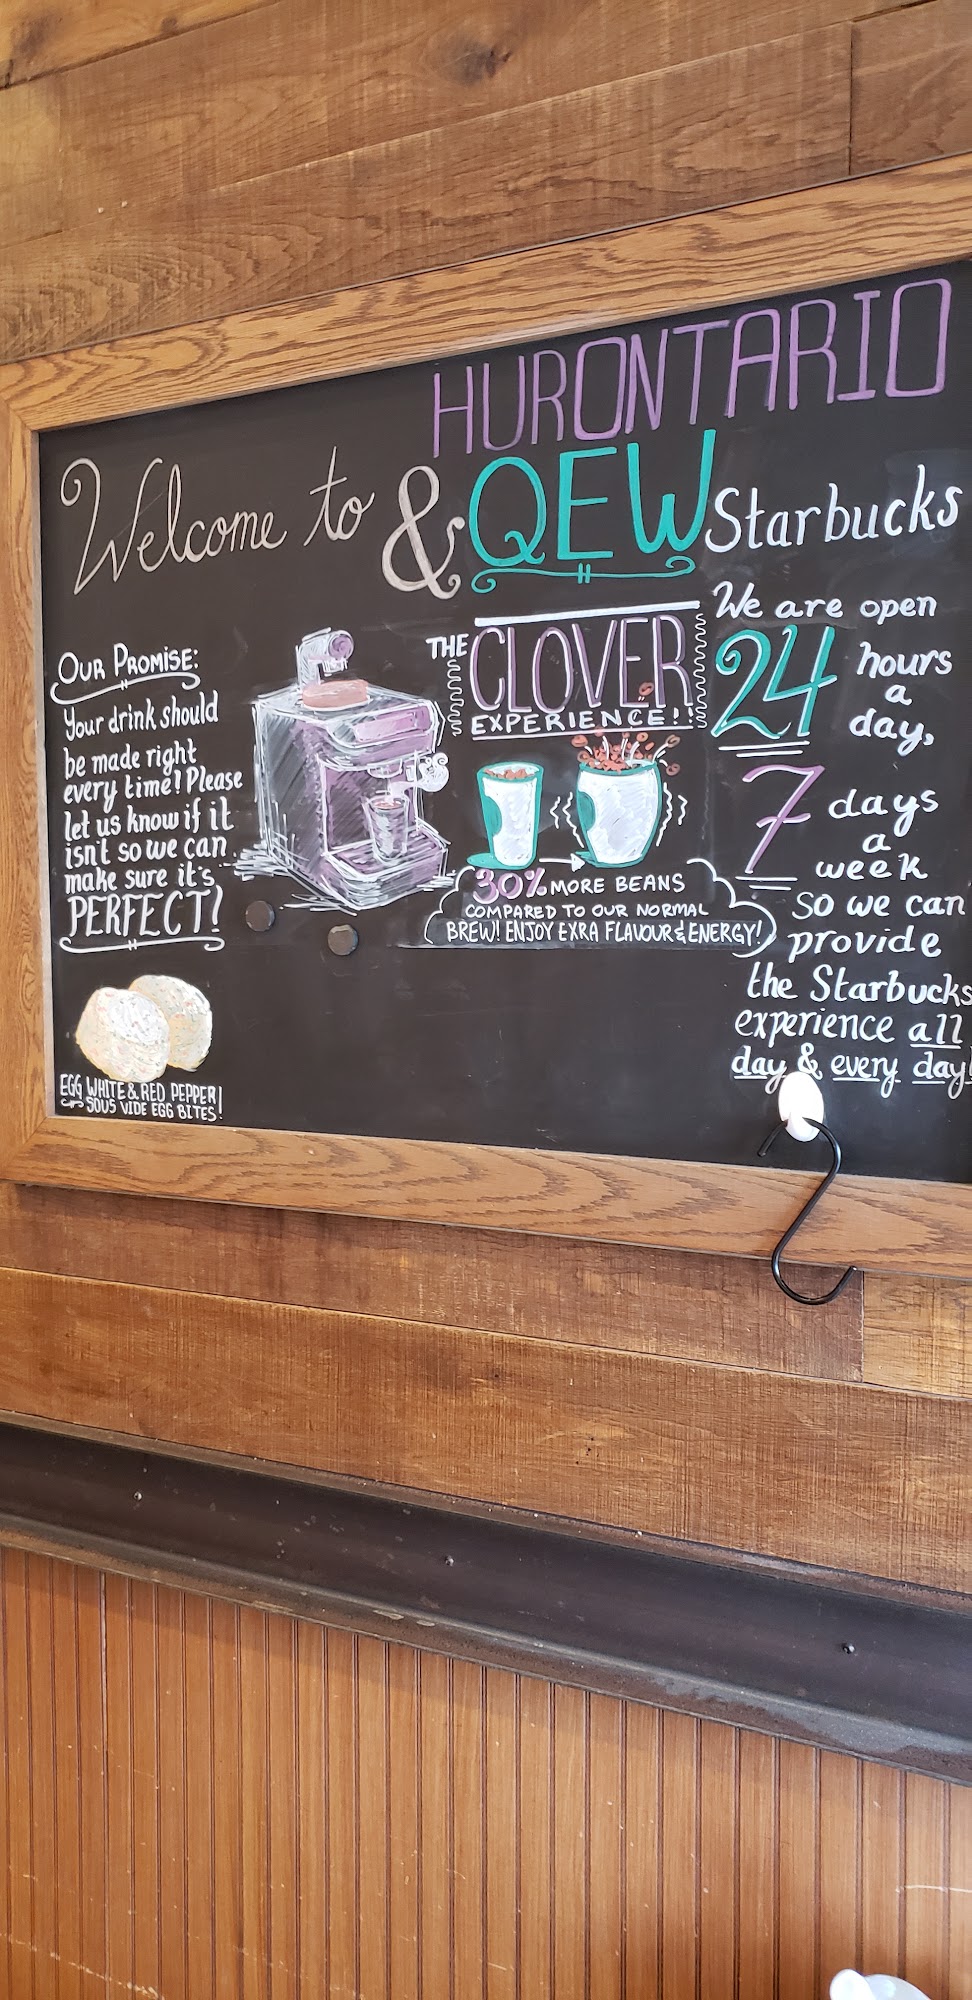 HURONTARIO
Welcome to & QEW Starbucks
OUR PROMISE:
Your drink should
be made right
every time! Please
let us know if it
isn't so we can
make sure it's
PERFECT!
EGG WHITE & RED PEPPER!
SOUS VIDE EGG BITES!
THE CLOVER
EXPERIENCE!!
30% MORE BEANS
COMPARED TO OUR NORMAL
BREW! ENJOY EXRA FLAVOUR & ENERGY!
We are open
24 hours
a
day,
7 days
a
week
so we can
provide
the Starbucks
experience all
day & every day!